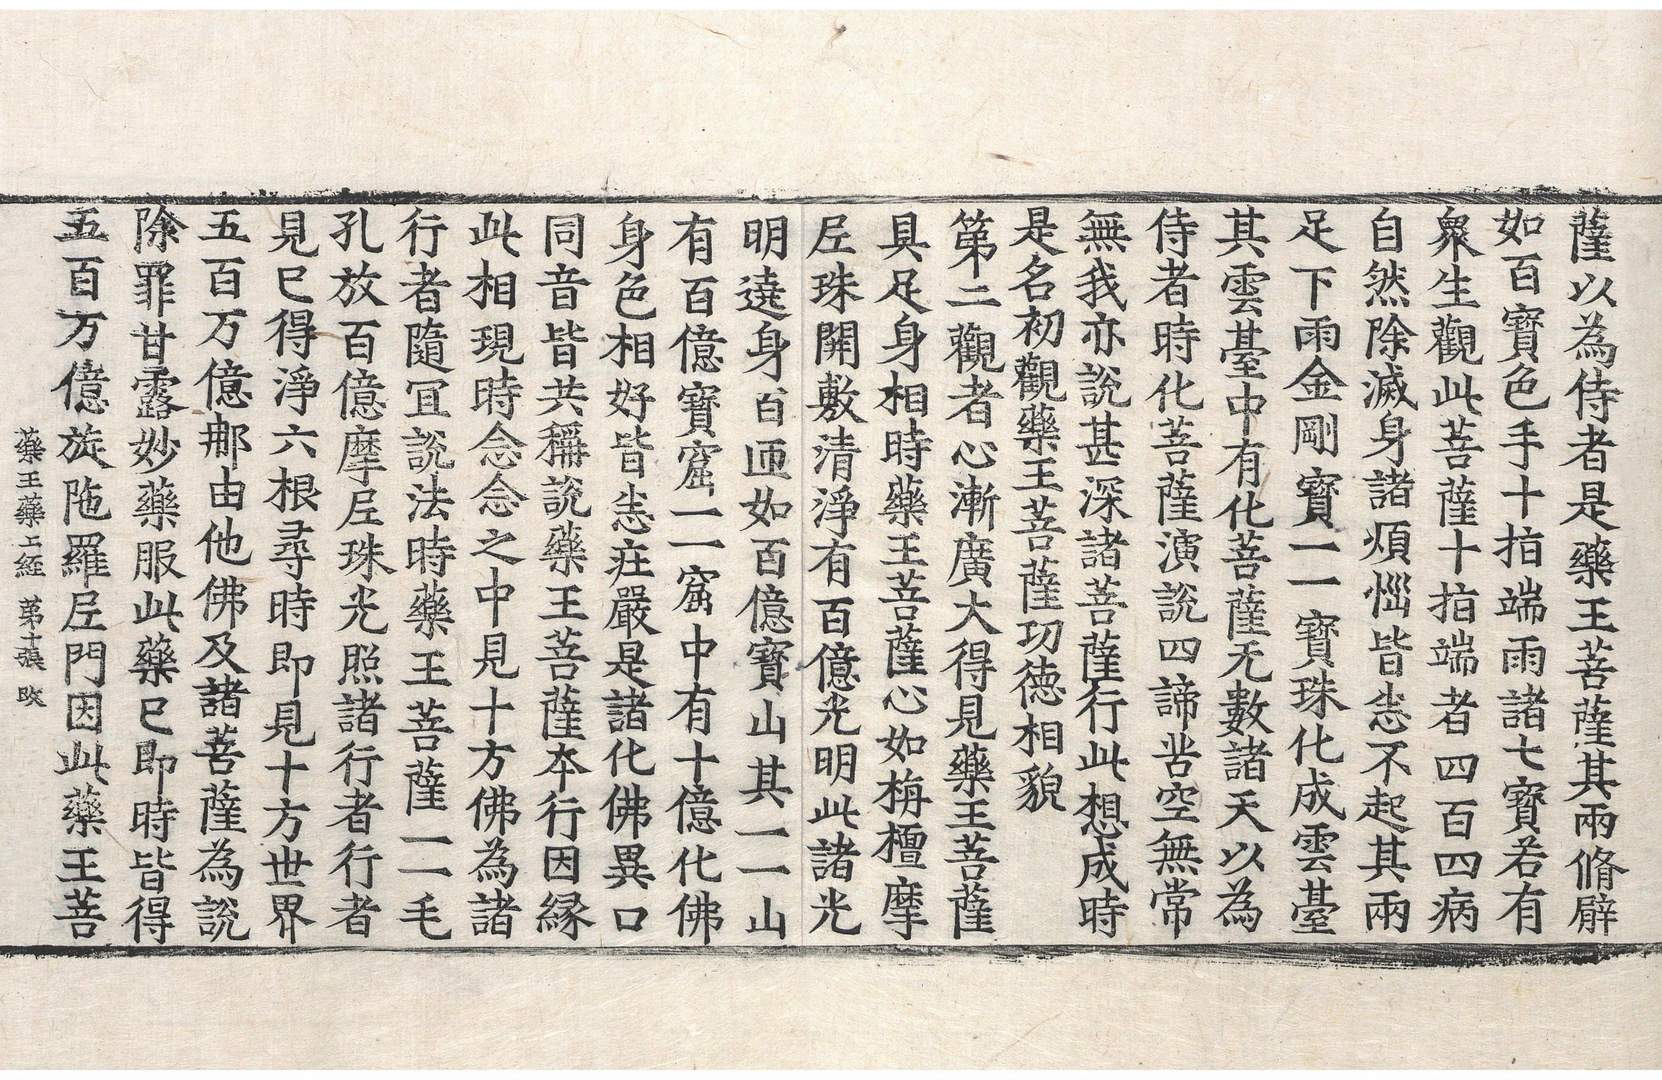 薩以為侍者是藥王菩薩其兩脩臂
如百寶色手十指端雨諸七寶若有
衆生觀此菩薩十指端者四百四病
自然除滅身諸煩惱皆悉不起其兩
足下雨金剛寶一一寶珠化成雲臺
其雲臺中有化菩薩无數諸天以為
侍者時化菩薩演說四諦苦空無常
無我亦說甚深諸菩薩行此想成時
是名初觀藥王菩薩功德相貌
第二觀者心漸廣大得見藥王菩薩
具足身相時藥王菩薩心如栴檀摩
尼珠開敷清淨有百億光明此諸光
明遶身百匝如百億寶山其一一山
有百億寶窟一一窟中有十億化佛
身色相好皆悉莊嚴是諸化佛異口
同音皆共稱說藥王菩薩本行因緣
此相現時念念之中見十方佛為諸
行者隨宜說法時藥王菩薩一一毛
孔放百億摩尼珠光照諸行者行者
見已得淨六根尋時即見十方世界
五百万億那由他佛及諸菩薩為說
除罪甘露妙藥服此藥已即時皆得
五百万億旋陁羅尼門因此藥王菩
藥王藥上經 第十張 改